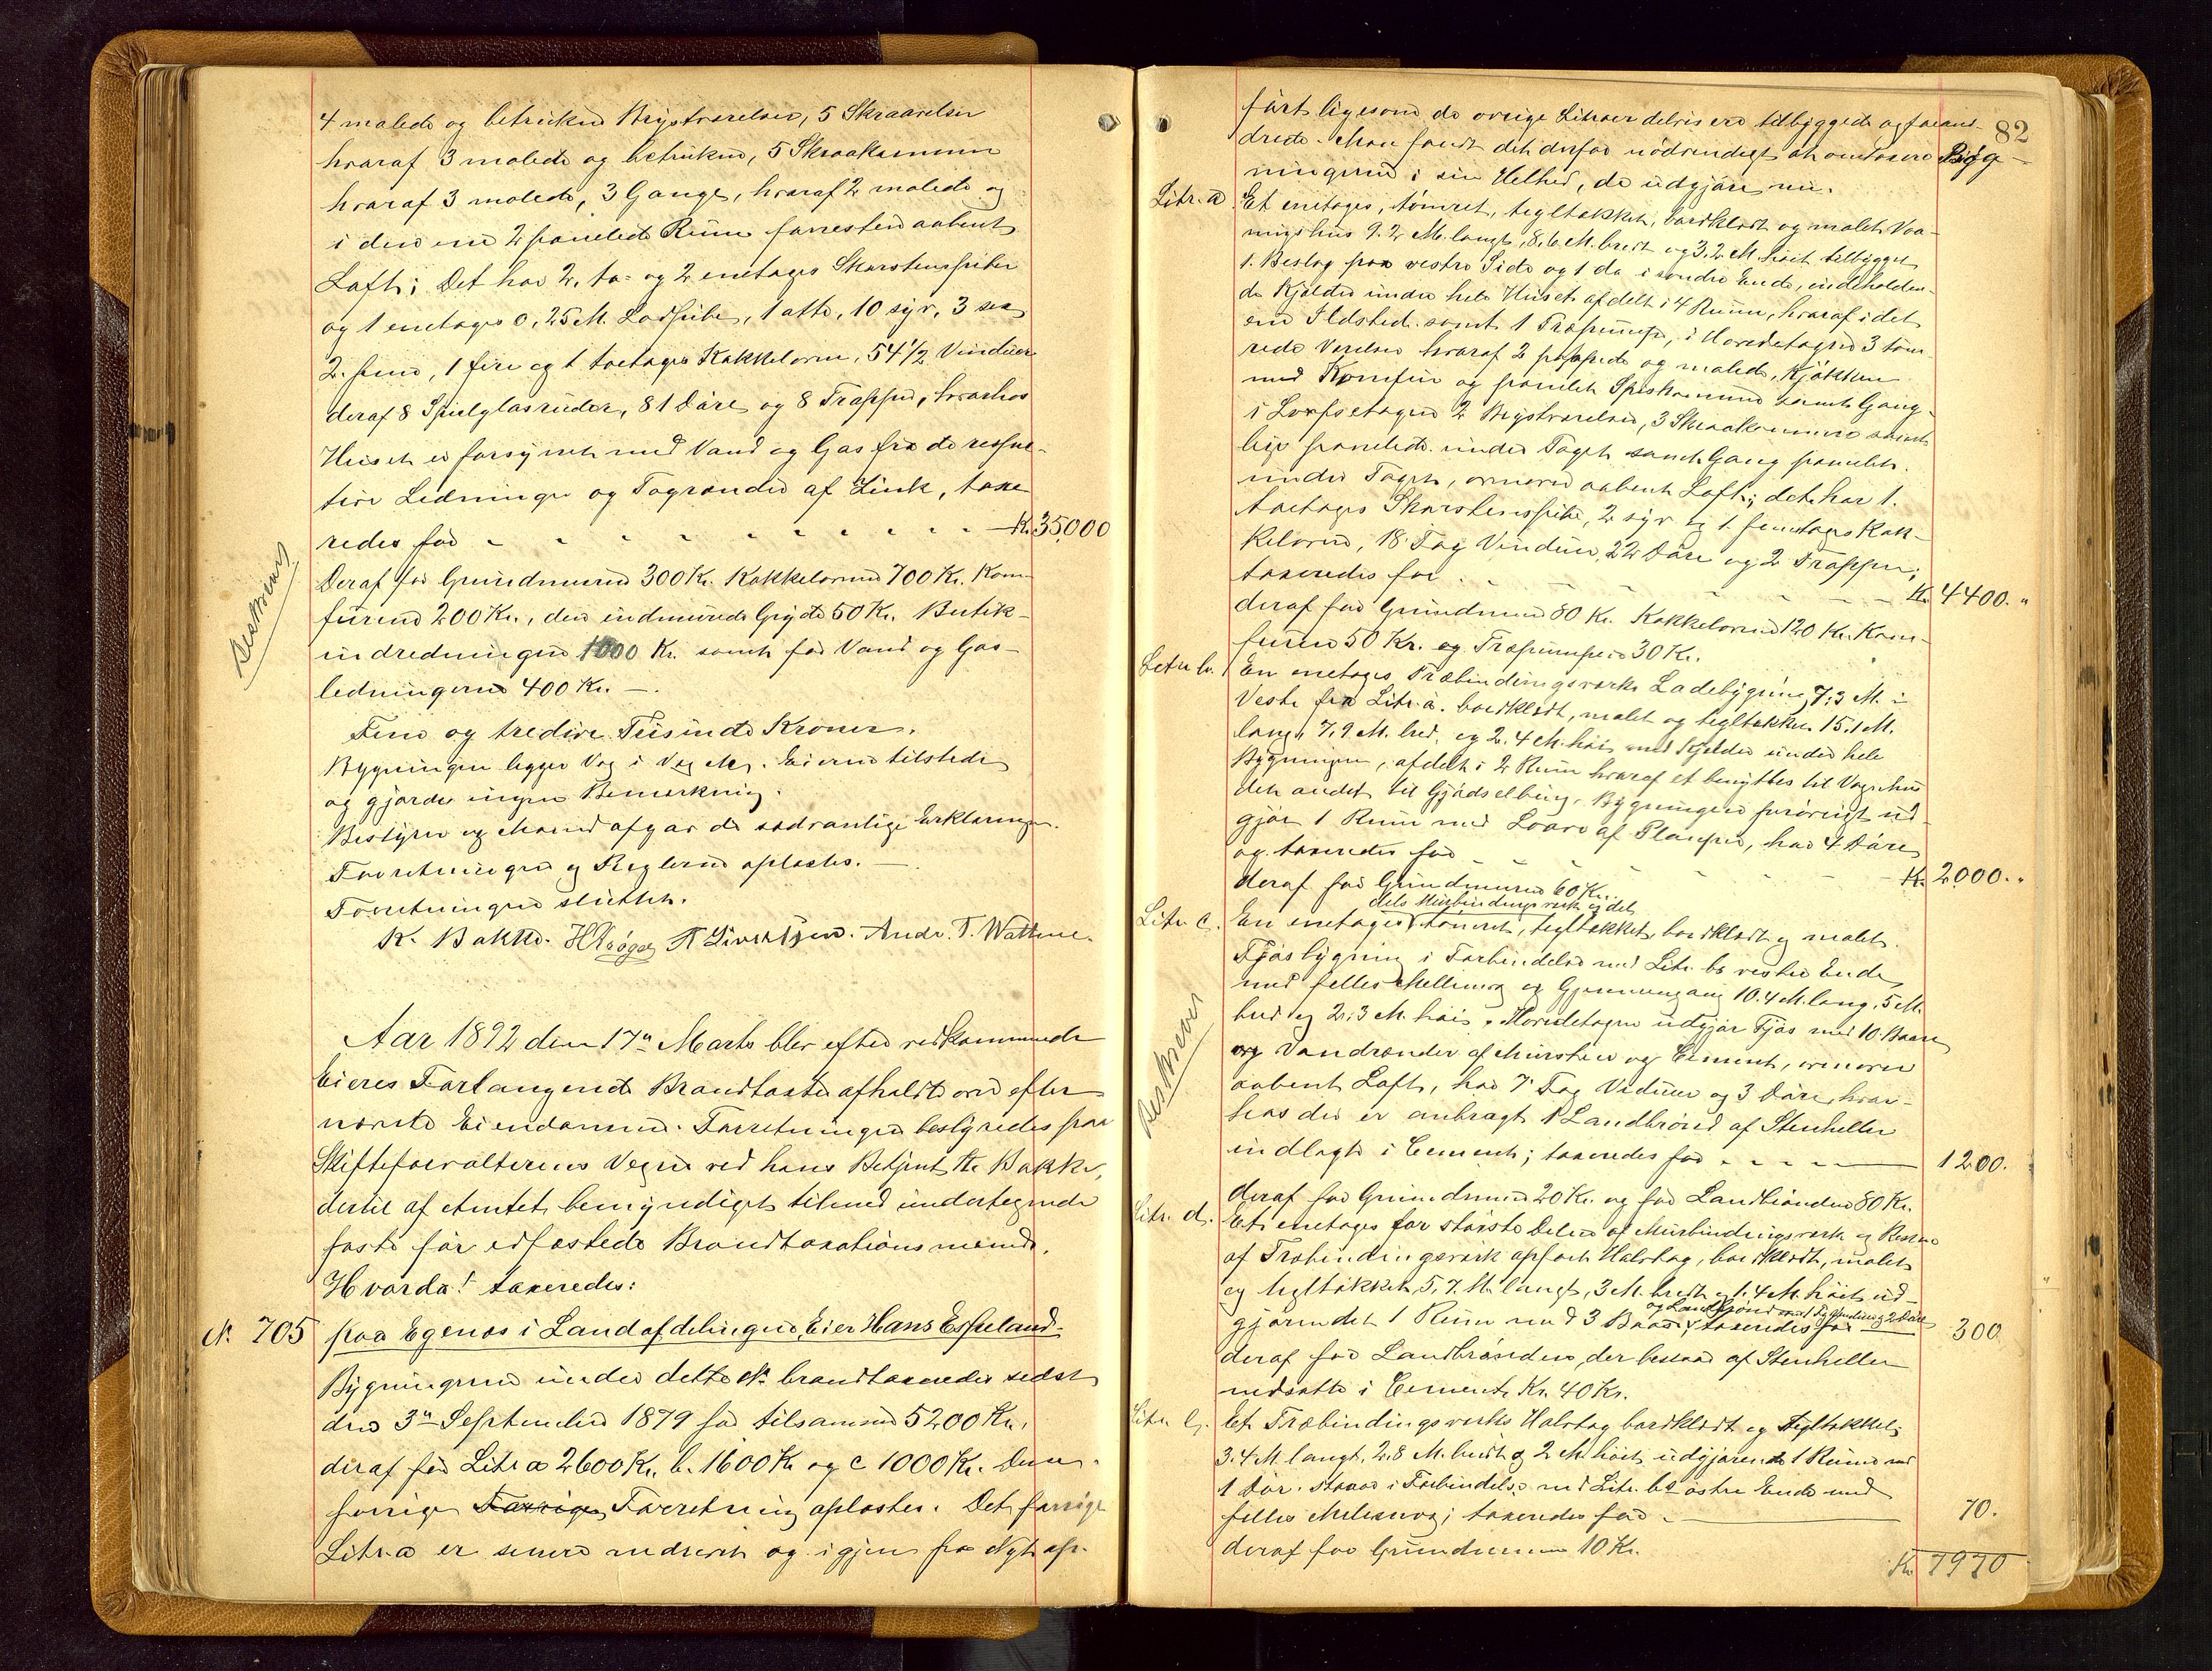 4 malede og betrukne Kvistværelser, 5 Skraavrelser
hvoraf 3 malede og betrukne, 5 Skraakammere
hvoraf 3 malede, 3 Gange, hvoraf 2 malede og
i den ene 2 panelede Rum forresten aabent
Loft; Det har 2, to- og 2 enetages Skorstenspiber
og 1 enetages 0,25 M. Lodpibe, 1 otte, 10 syv, 3 sex
2. fem, 1 fire og 1 toetages Kakkelovne, 54 1/2 Vinduer
deraf 8 Speilglasruder, 81 Døre og 8 Trapper, hvorhos
Huset er forsynet med Vand og Gas fra de respec-
tive Ledninger og Tagrender af Zink, taxe-
redes for - - - - - - - - Kr. 35,000
Beskreven
Deraf for Grundmuren 300 Kr. Kakkelovne 700 Kr. Kom-
furene 200 Kr., den indmurede Gryde 50 Kr. Butik-
indredningen 1000 Kr. samt for Vand og Gas-
ledningerne 400 Kr. —.
Fem og tredive Tusinde Kroner.
Bygningen ligger Væg i Væg Eieren tilstede
og gjorde ingen Bemærkning.
Bestyrer og Mænd afgav de sædvanlige Erklæringer.
Forretningen og Reglerne oplæstes. —
Forretningen sluttet.
K. Bakke. Andr. T. Watne.
Aar 1892 den 17de Marts blev efter vedkommende
Eieres Forlangende Brandtaxter afholdt over efter-
nævnte Eiendomme. Forretningen bestyredes paa
Skifteforvalterens Vegne ved hans Betjent K. Bakke,
dertil af Amtet bemyndiget tilmed undertegnede
faste før edfæstede Brandtaxationsmænd.
Hvorda! taxeredes:
N. 705 paa Egenæs i Landafdelingen, Eier Hans Espeland.
Bygningerne under dette No brandtaxeredes sidst
den 3de September 1879 for tilsammen 5200 Kr.
deraf for Litr a 2600 Kr. b. 1600 Kr og c 1000 Kr. Denne
forrige Forrige Forretning oplæstes. Det forrige
Litr. a er senere nedrevet og igjen fra Nyt op-
82
ført ligesom de øvrige Litraer delvis ere tilbyggede og foran-
drede. Man fandt det derfor nødvendigt at omtaxere Byg-
ningerne i sin Helhed, de udgjøre nu.
Litr. a Et enetages, tømret, tegltækket, bordklædt og malet Vaa-
ningshus 9.2 M. langt, 8,6 M. bredt og 3,2 M høit tilbygget
1. Beslag paa vestre Side og 1 do i søndre Ende, indeholden-
de Kjelder under hele Huset afdelt i 4 Rum, hvoraf i det
ene Ildsted samt 1 Træpumpe, i Hovedetagen 3 tøm-
rede Værelser hvoraf 2 pappede og malede, Kjøkken
med Komfur og panelet Spiskammer samt Gang
i Loftsetagen 2 Kvistværelser, 3 Skraakammere samt-
lige panelede under Taget samt Gang panelet
under Taget, ovenover aabent Loft; det har 1.
toetages Skorstenspibe, 2 syv og 1 femetages Kak-
kelovne, 18 Fag Vinduer, 22 Døre og 2 Trapper;
taxeredes for - - - - - - Kr. 4400. "
deraf for Grundmuren 80 Kr. Kakkelovne 120 Kr. Kom-
furen 50 Kr. og Træpumpen 30 Kr.
Litr b. En enetages Træbindingsværks Ladebygning 7,3 M. i
Vest fra Litr. a. bordklædt, malet og tegltækket 15.1 M.
lang, 7,9 M. bred, og 2.4 M. høi med Kjelder under hele
Bygningen, afdelt i 2 Rum hvoraf et benyttes til Vognhus
det andet til Gjødselbing. Bygningen forøvrigt ud-
gjør 1 Rum med Loave af Planker, har 4 Døre
og taxeredes for - - - - - Kr. 2000. "
deraf for Grundmuren 60 Kr.
dels Murbindingsværk og dels
Litr c. En enetages tømret, tegltækket, bordklædt og malet
Fjøsbygning i Forbindelse med Litr. bs vestre Ende
med fælles Mellemvæg og Gjennemgang 10.4 M. lang, 5 M.
bred og 2,3 M. høi. Hovedetagen udgjør Fjøs med 10 Baase
Beskreven
og Vandrender af Mursten og Cement, ovenover
aabent Loft, har 7 Fag Vinduer og 3 Døre, hvor-
hos der er anbragt 1 Landbrønd af Stenheller
indlagt i Cement; taxeredes for - - - - 1200.
deraf for Grundmuren 20 Kr. og for Landbrønden 80 Kr.
Litr. d. Et enetages for største Delen af Murbindingsværk og Resten
af Træbindingsværk opført Halvtag, bordklædt, malet
og tegltækket, 5,7. M. langt, 3 M. bredt og 1.4 M. høit ud-
og Landbrønd samt 1 Fag Vindu og 2 Døre
gjørende 1 Rum med 3 Baase, taxeredes for 300
deraf for Landbrønden, der bestaar af Stenheller
nedsatte i Cement Kr. 40 Kr.
Litr. e. Et Træbindingsværks Halvtag bordklædt og Tegltækket
3.4 M. langt, 2.8 M. bredt og 2 M. høit, udgjørende 1 Rum med
1 Dør. staar i Forbindelse med Litr. bs østre Ende med
fælles Mellemvæg; taxeredes for - 70.
deraf for Grundmuren 10 Kr.
Kr. 7970